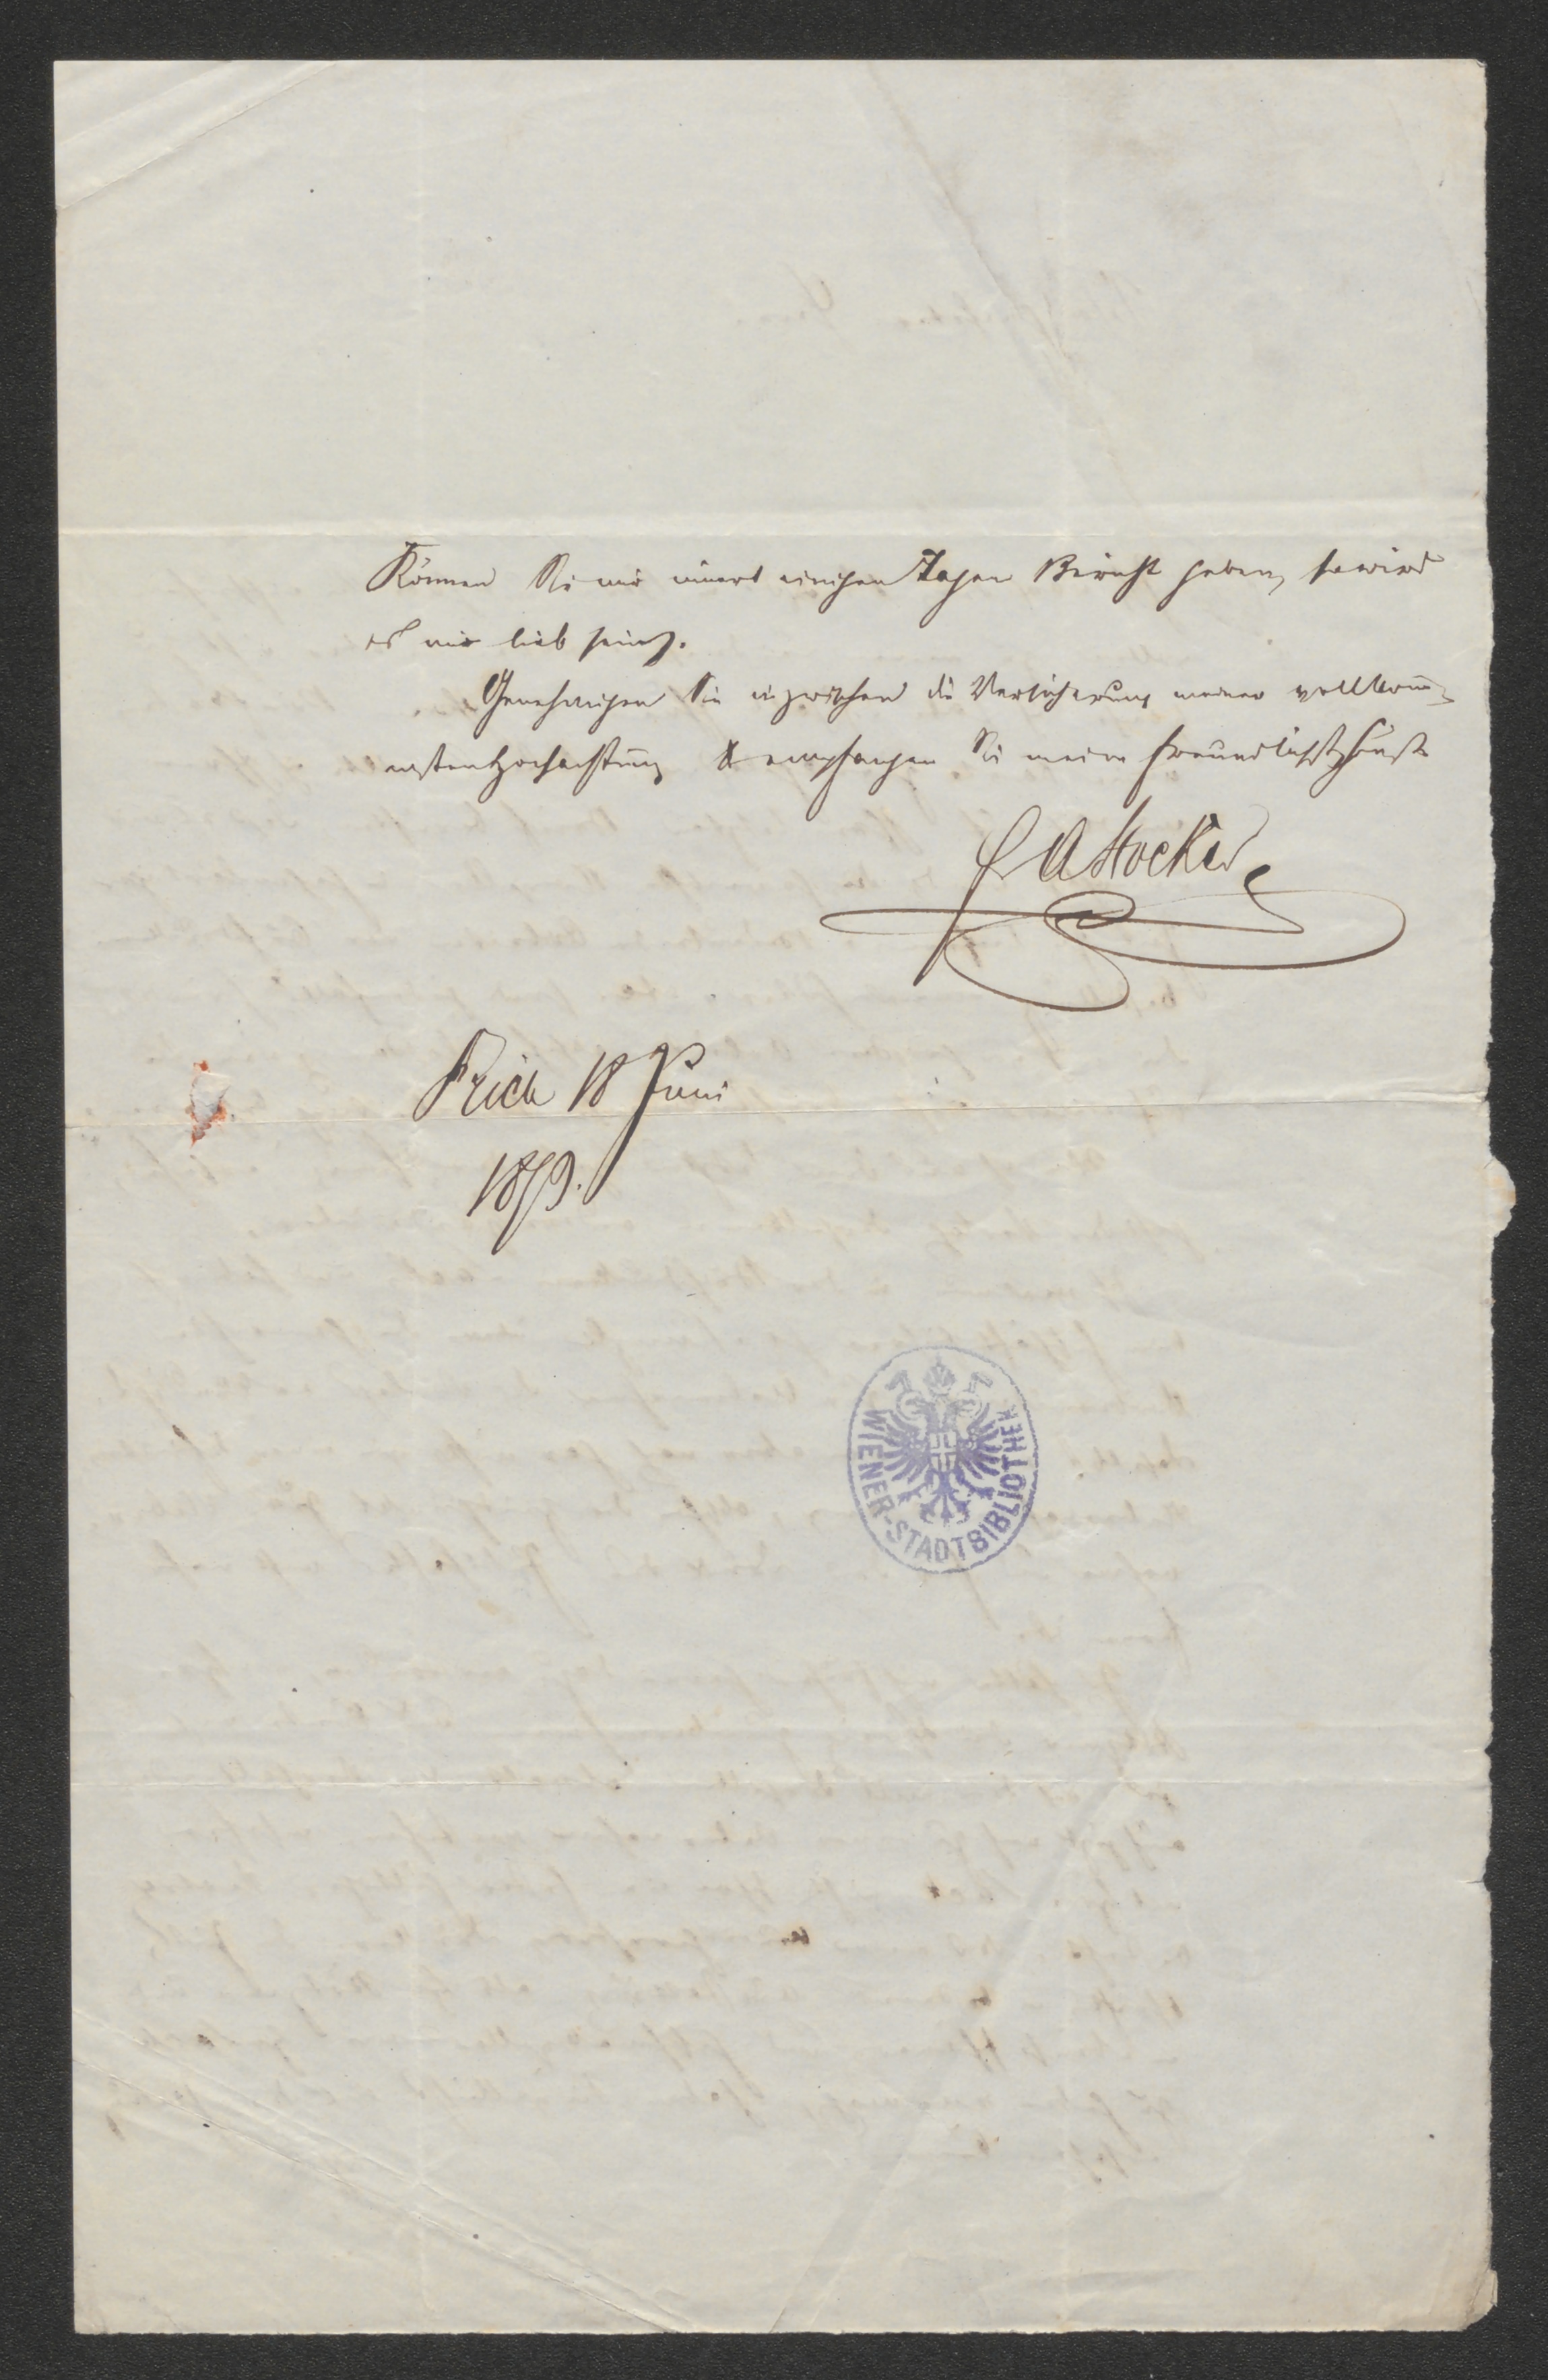 Können Sie mir innert einigen Tagen Bericht geben, so wird
es mir lieb sein.
Genehmigen Sie inzwischen die Versicherung meiner vollkom̅-
ensten Hochachtung & empfangen Sie meine freundlichst Grüße
F A Stocker
Frick 18 Juni
1859.
WIENER-STADTBIBLIOTHEK